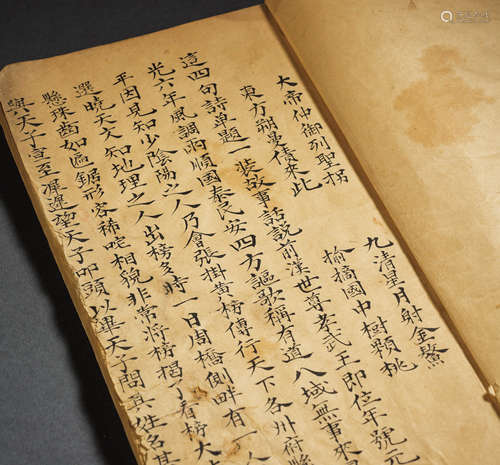 大帝仲御列聖拐 九清星月射金鰲
東方朔曼倩來此 偷摘國中樹顆桃
這四句詩單題一裝故事話說前漢世尊孝武王即位年號元
光六年風調雨順國泰民安四方謳歌稱有道八域無事來
平因見知少陰陽之人乃會張掛黃榜傳行天下各州府縣
選曉天文知地理之人出榜多時一日周橋側畔有一人
懸珠齒如區鋸形容稀咤相貌非常將榜揭了看榜大
與天子宣至墀遲望天子叩頭以畢天子問其住名甚